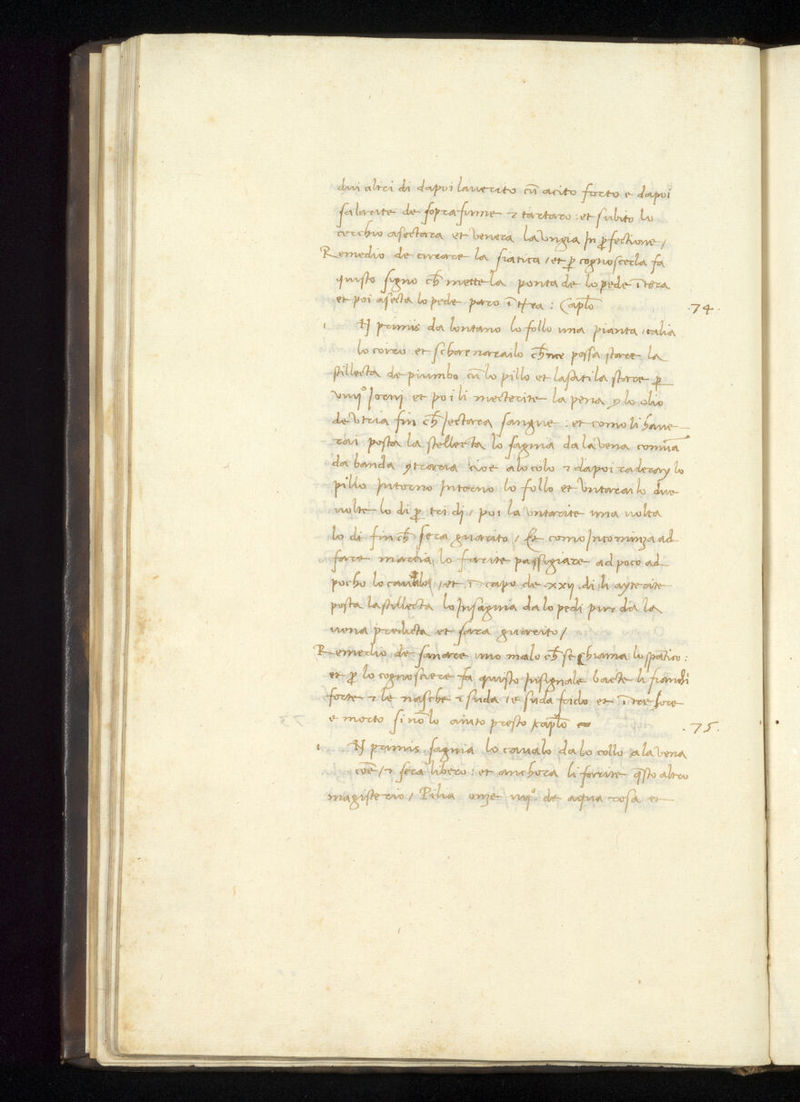 dui altri di dapoi lauerito cū acito forto e dapoi
salarite de soprafinne ⁊ tartaro : et subito lo
cerchio asectara et venera la vngia In p̄fectione /
Remedio de curare la siatica / et p̄ cognoscerla fa
quisto signo ch̄ mette la ponta de lo pede ī terra
et poi asecta lo pede paro ī t̄ra : Caplō
.74.
I N primis da lontano lo follo una pianta, talia
lo corro et scharnarailo ch̄ nce possa stare la
stillecta de piumbo cū lo pillo et lassatila stare p̄
viiijº Jorni et poi li mecterite la pena 9 lo olio
de vtria fin ch̄ Jectara sangue : et como li haue
rai posta la stellecta lo sagnia da la vena comūa
da banda 9traria cioe a lo colo ⁊ dapoi raderay lo
pillo Intorno Intorno lo follo et vntarailo due
uolte lo di p̄ tri di / poi la vntarite una uolta
lo di fin ch̄ sera guarito / Et como Incominza ad
fare marcia lo farite passigiare ad poco ad
pocho lo cauallo / et ī capo de xxij di li ayterite
posta la stillecta lo Insagnia da lo pedi pur da la
uena predicta et sara guarito /
Remedio de sanare uno malo ch̄ se chiama lo spatico :
et p̄ lo cognosciere fa quisto Insignale bacte li fianchi
forte ⁊ le nasche ⁊ suda / e suda frido et ī tre hore
e morto si nō lo aiuto presto caplō
.75.
I N primis sagnia lo cauallo da lo collo a la vena
coē / ⁊ sera libero : et anchora li farite q̄sto altro
magisterio / Pilia onze iiijº de aqua rosa et